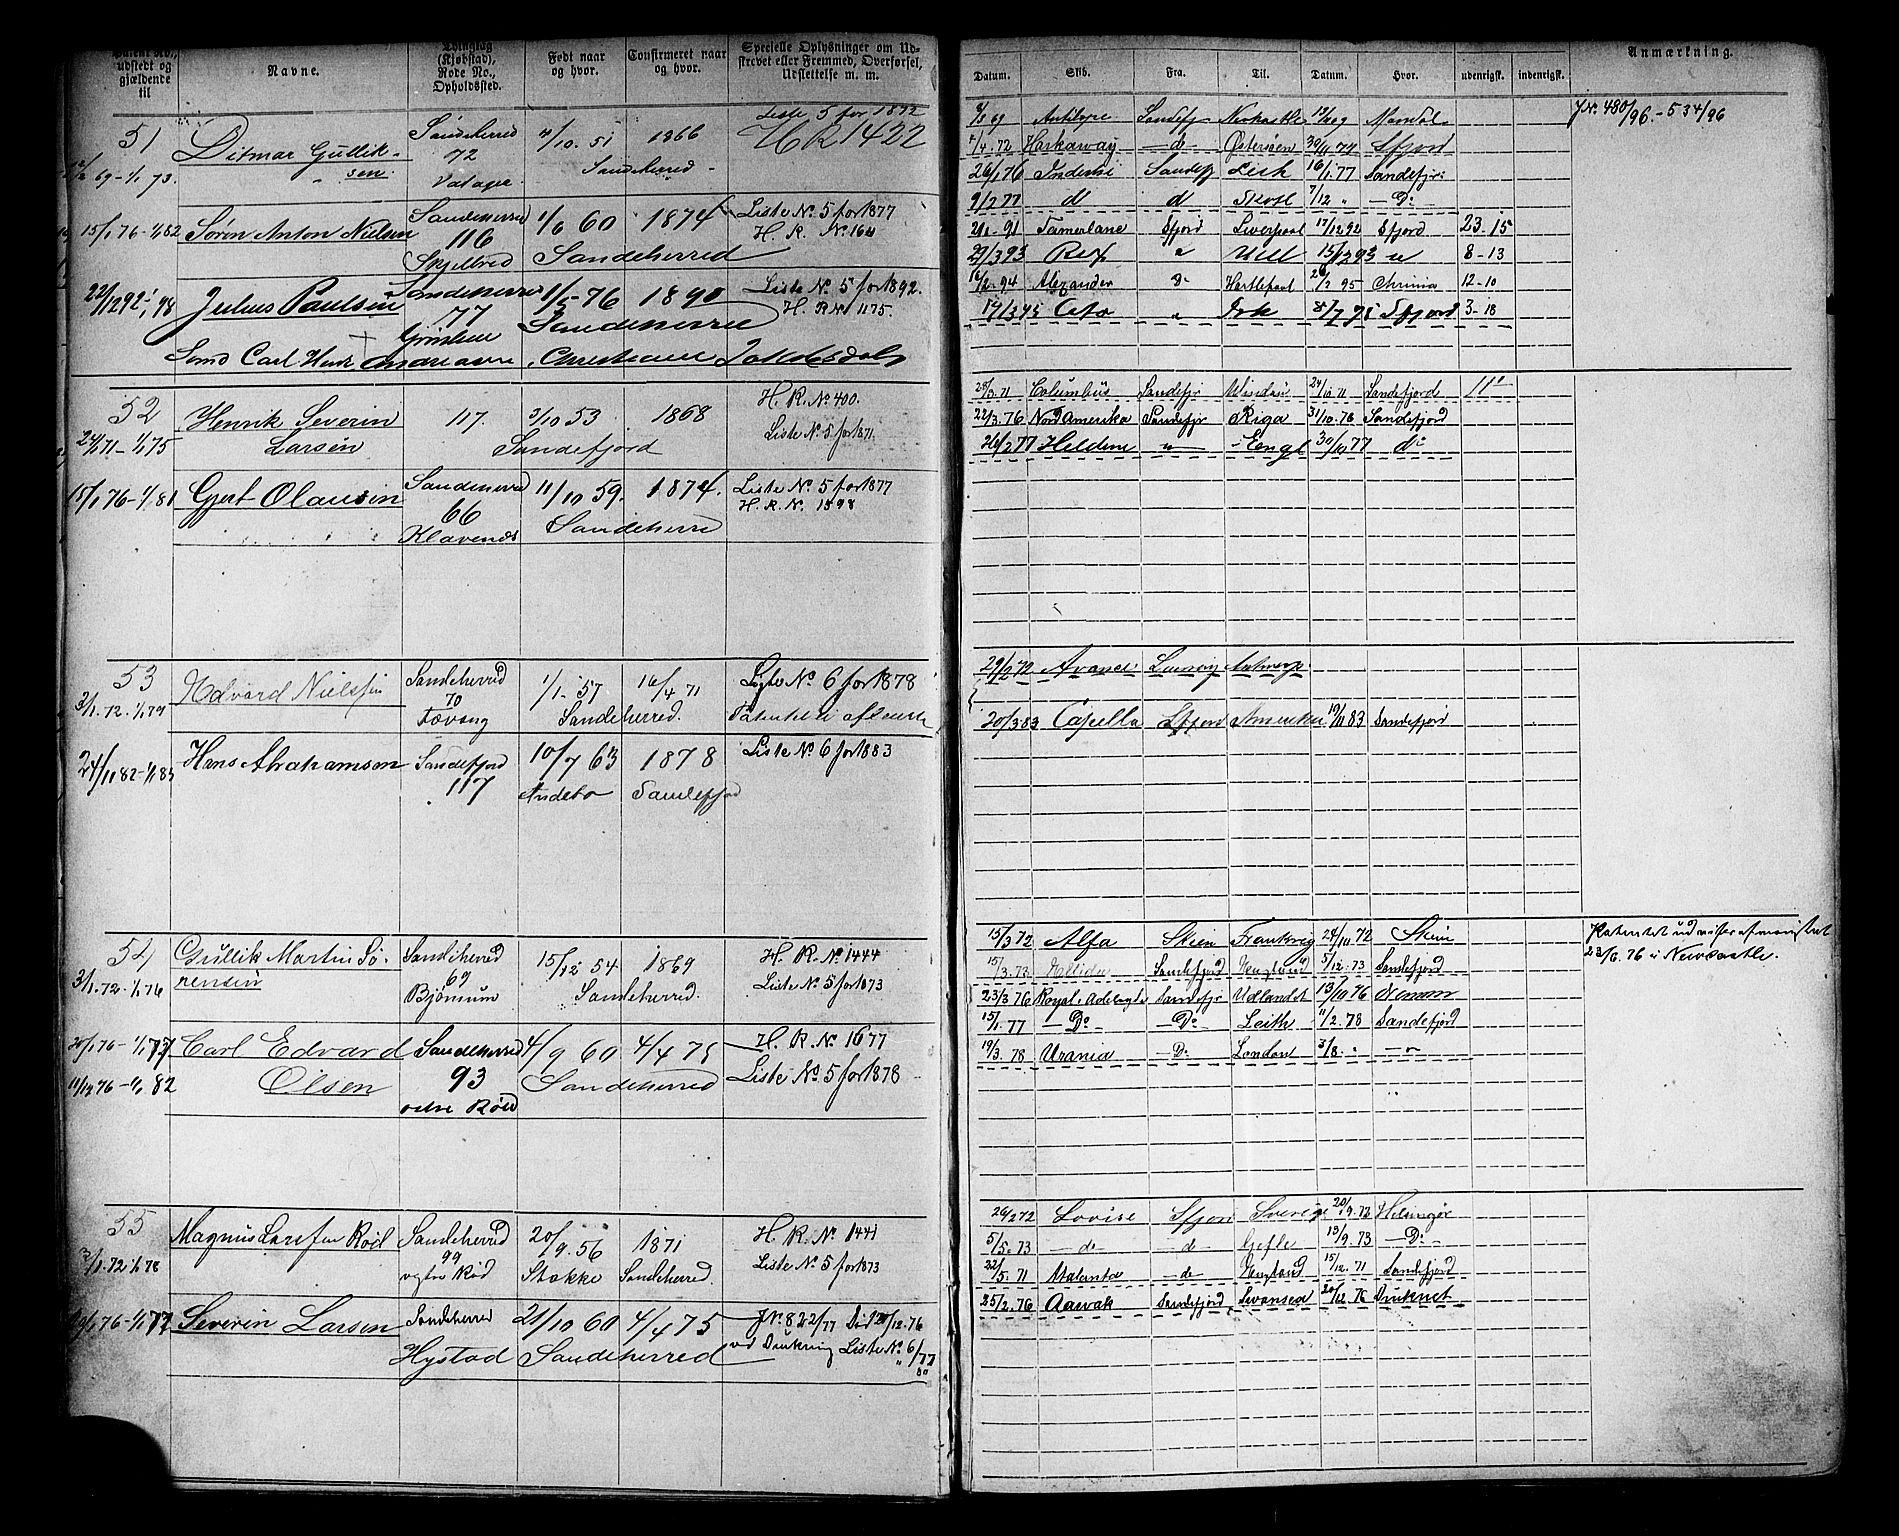 Patent No., udstedt og gjældende til
Navne.
Thinglag (Kjøbstad), Rode No., Opholdssted.
Født naar og hvor.
Confirmeret naar og hvor.
Specielle Oplysninger om Udskrevet eller Fremmed, Overførsel, Udslettelse m. m.
51
69-1/1 73.
Ditmar Gullik-
sen
Sandeherred
72
/10. 51
1866
Sandeherred
Liste 5 for 1872
H R 1422
15/1 76-1/1 82
Søren Anton Nielsen
Sandeherred
116
Skjelbred
1/6 60
1874
Sandeherred
Liste No 5 for 1877
H. R. No 164
22/12 92-1/1 98
Julius Paulsen
Sandeherred
77
1/5-76
1890
Sandeherred
Liste No 5 for 1892.
H. R. No 1175.
52
24/1 71-1/1 75
Henrik Severin
Larsen
117.
3/10 53
1868
Sandefjord
H. R. No 400.
Liste No 5 for 1871.
15/1 76-1/1 81
Gjert Olausen
Sandeherred
66
Klavenæs
11/10 59.
1874.
Sandeherred
Liste No 5 for 1877
H. R. No. 1898
53
3/1. 72. 1/1 79
Edvard Nielsen
Sandeherred
70
1/1. 57
16/4 71
Sandeherred.
Liste No 6 for 1878
24/11 82-1/1 83
Hans Abrahamsen
Sandefjord
117
10/7 63
1878
Andebo
Sandefjord
Liste No 6 for 1883
54
3/1. 72. 1/1 76
Gullik Martin Sø-
rensen
Sandeherred
69
Bjønnum
15/12 54
1869
Sandeherred.
H. R. No 1444
Liste No 5 for 1873
20/1 76-1/1 77
11/12 76-1/1 82
Carl Edvard
Olsen
Sandeherred
93
østre Røed
4/9 60
4/4 75
Sandeherred
H. R. No 1677
Liste No 5 for 1878
55
3/1. 72 1/1 78
Magnus Larsen Röd
Sandeherred
99
20/9. 56
1871
Stokke
Sandeherred.
H. R. No 1441
Liste No 5 for 1873
/1 76-1/1 77
Severin Larsen
Sandeherred
Hystad
21/10 60
4/4 75
Sandeherred
J No 822/77 Död 20/12. 76
ved Drukning Liste No 6/77
Datum.
Skib.
Fra.
Til.
Datum.
Hvor.
udenrigsk.
indenrigsk.
Anmærkning.
Antilope Sandefj Newkastle Mandal
J No 480/96.-534/96
/4. 72 Harkaway -d- Østersøen Sfjord
26/1 76 Indevei Sandefj Leith 16/1. 77 Sandefj:
9/2 77 d d 7/12 " -Do-
91 Tamerlane Sfjord Liverpool 17/12 92 Sfjord 23-15
29/3 93 Rex " 8-13
/2. 94 Alexander Do Hartlepool /2 95 Chrinia 12-10
Ceto " Sfjord 3-18
28/3. 71 Columbus Sandefjr Windau 24/10. 71 Sandefjord 11'
22/3. 76 Nord Amerika Sandefjr Riga 31/10. 76 Sandefjord
26/2 77 Heldine " Engl 30/10 77 do
29/2 72 Avance Antwerp.
20/3 83 Capella Sfjord Amerika 19/11 83 Sandefjord
15/3 72 Alfa Skien 24/10 72 Skien
15/3. 73 Sandefjord England 5/12. 73 Sandefjord
23/6. 76 i Newcastle.
23/3 76 Royal Adelagde Sandefjr Udlandet 13/10 76
15/1. 77 -Do- -Do- Leith 11/2. 78 Sandefjord
19/3. 78 Urania -Do- London 3/8. " -"-
26/2 72 Lovise Sfjord Sverige 20/9. 72 Helsingør
5/5. 73 -do- -do- Gefle 13/9. 73 -Do-
22/5. 71 Atalanta -do- England 15/12. 71 Sandefjord
25/2. 76 Aavak Sandefjord Svansea 20/12. 76 Druknet